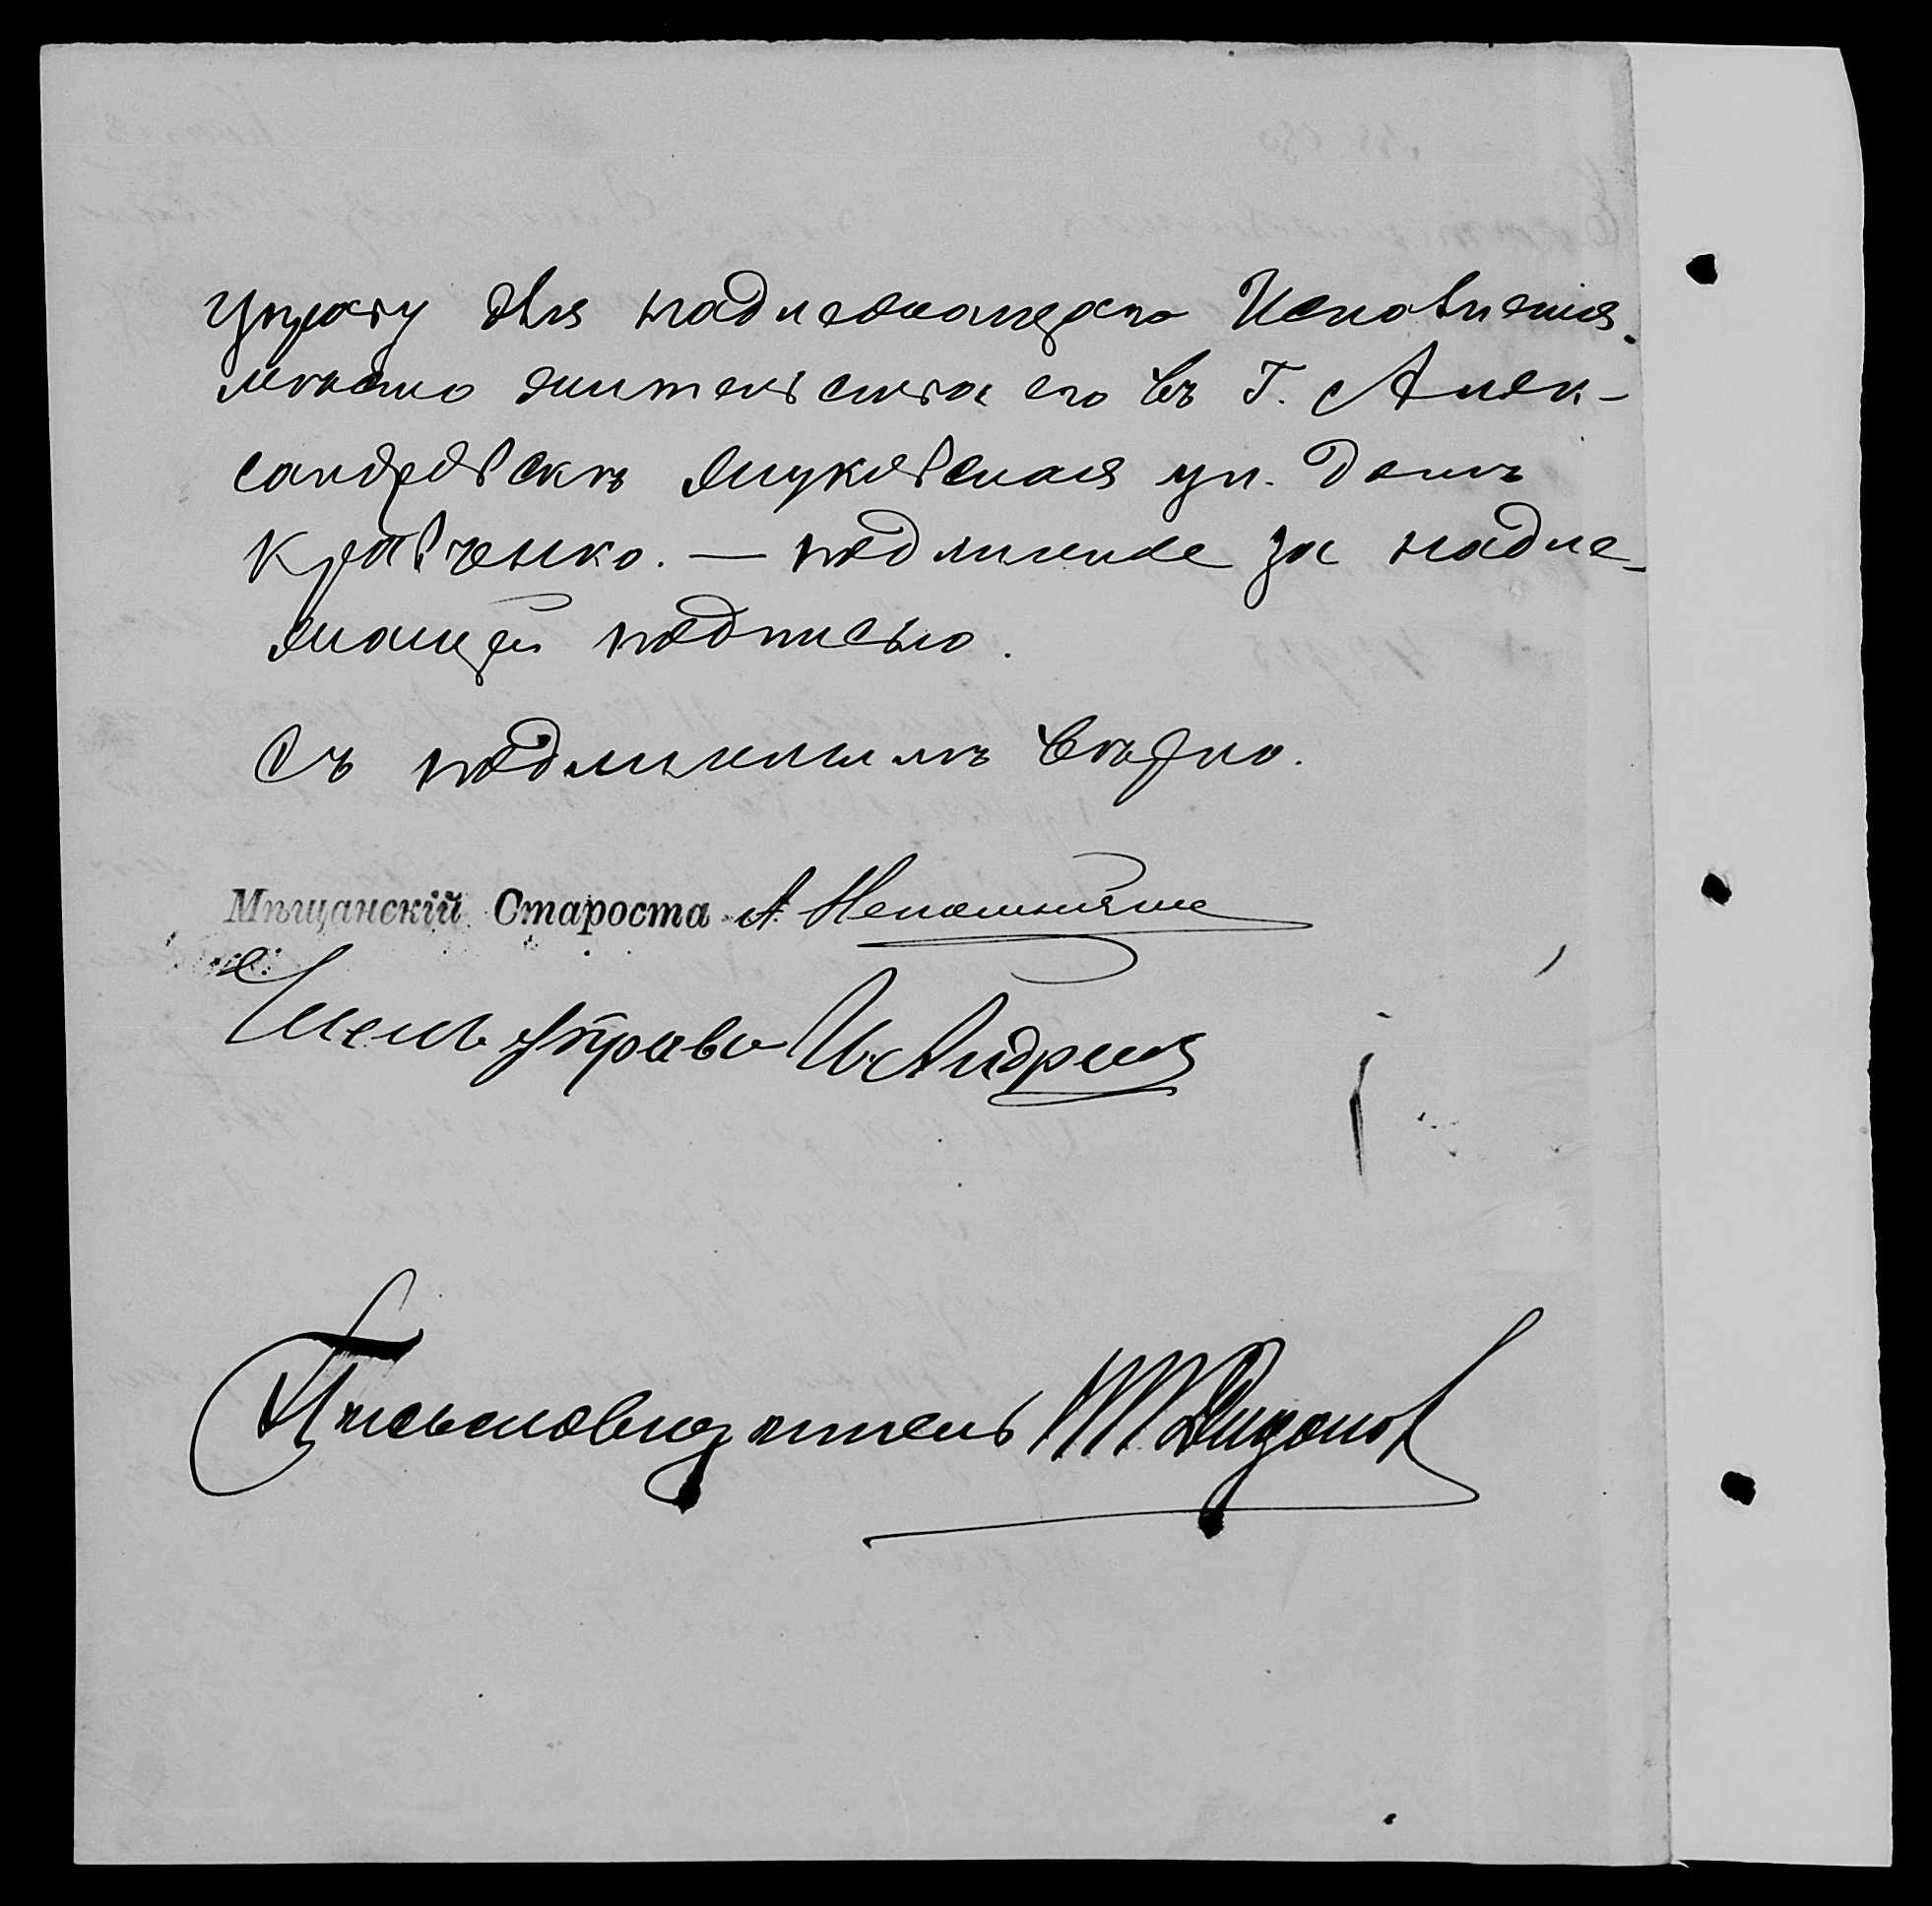 Управу для надлежащаго Исполненія.
мѣсто жительства его въ Г. Алек-
сандровскѣ Жуковская ул. домъ
Кравченко. — подлинное за надле-
жащей подписью.
Съ подлиннымъ вѣрно.
Мѣщанскій Староста А Непомнящ
Членъ Управы И. Андре
Письмоводитель